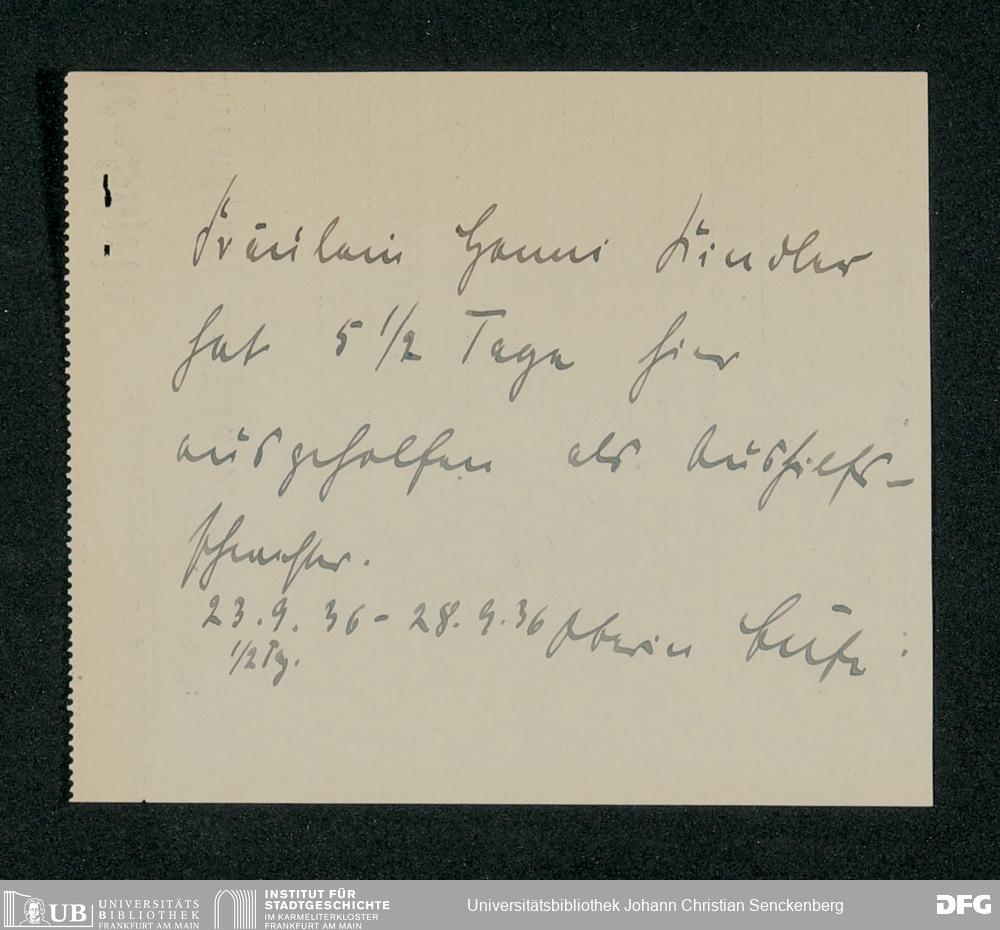 Fräulein Hanni Kindler
hat 5 1/2 Tage hier
ausgeholfen als Aushilfs-
schwester.
23.9.36 - 28.9.36 Oberin
1/2 Tg.
UB UNIVERSITÄTS
BIBLIOTHEK
FRANKFURT AM MAIN
INSTITUT FÜR
STADTGESCHICHTE
IM KARMELITERKLOSTER
FRANKFURT AM MAIN
Universitätsbibliothek Johann Christian Senckenberg
DFG